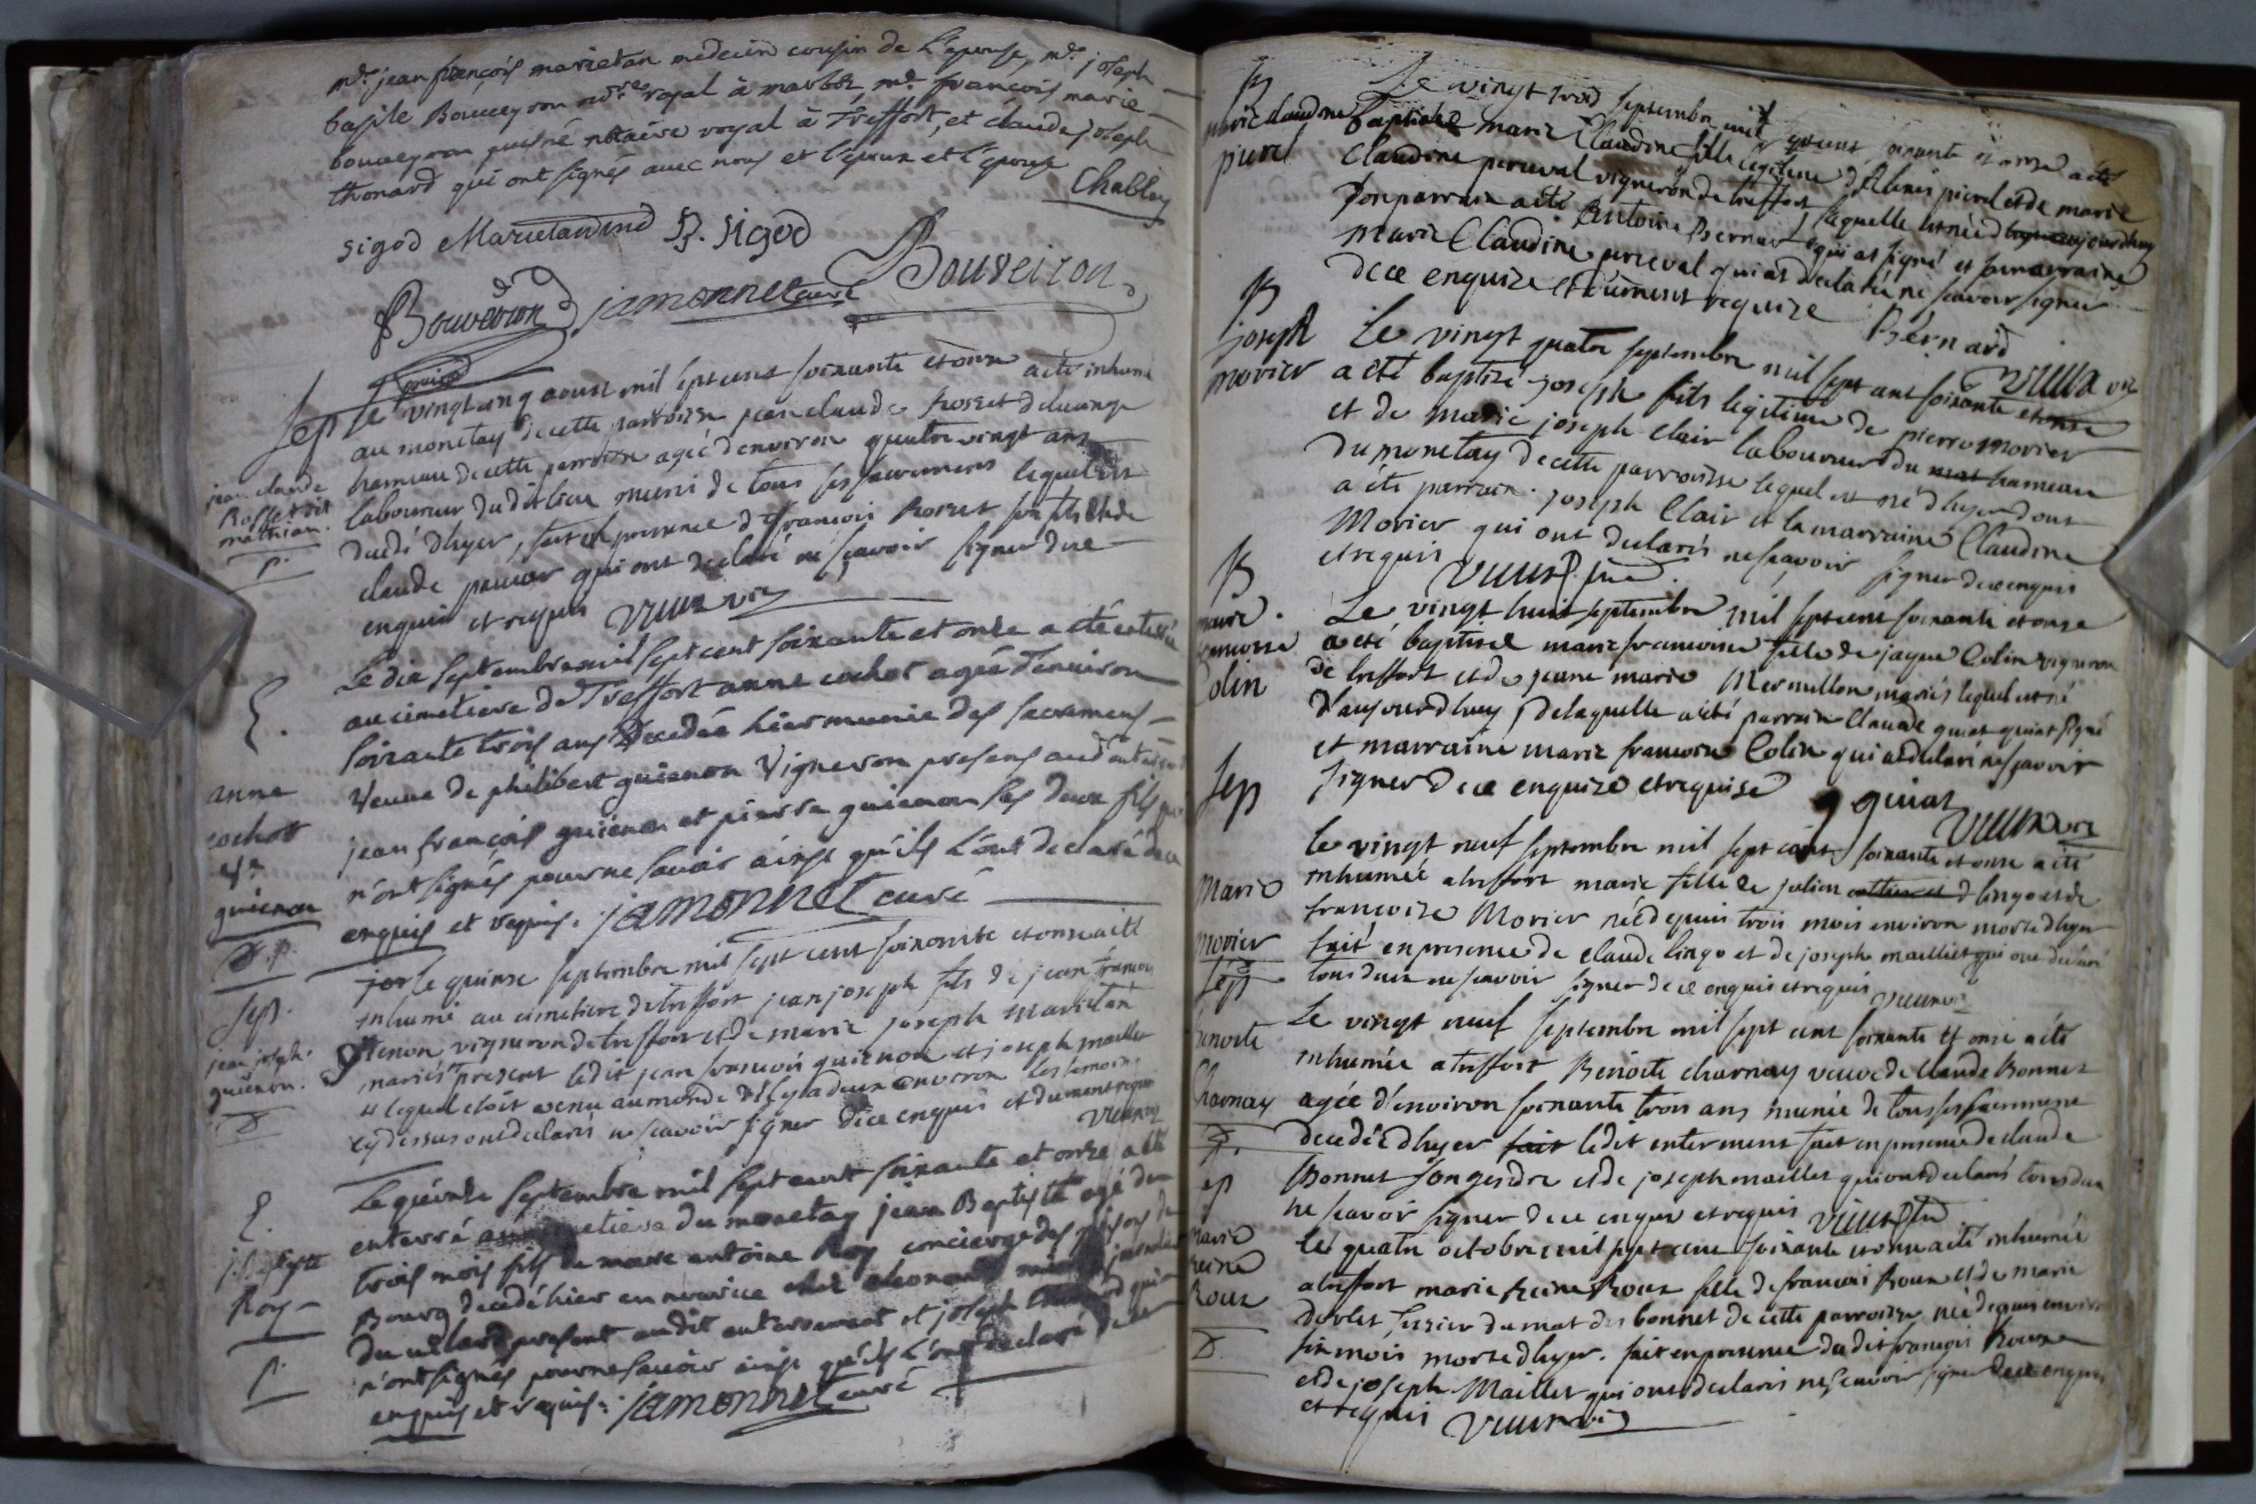 mr. jean françois marietan medecin cousin de l'epouse, mr. joseph
basile Bouveyron nore. royal à marboz, mr. françois marie
bouveyron puisné notaire royal à Treffort, et claude joseph
thonard qui ont signés avec nous et l'epoux et l'épouse
Chablay
sigod Marietan J. sigod
Bouveiron
Bouveiron jamonnet curé
Sep le vingt cinq aoust mil sept cent soixante et onze a eté inhumé
au monetay de cette parroisse jean claude Rosset
hameau de cette parroisse agée d'environ quatre vingt ans
jean claude
Rosset dit
mathian.
P.
laboureur du dit lieu muni de tous ses sacremens lequel est
decedé d'hyer, fait en presence de francois Rosset son fils et de
claude qui ont declaré ne sçavoir signer de ce
enquis et requis
E.
Le dix septembre mil sept cent soixante et onze a été enterrée
au cimetiere de Treffort anne cochet agée d'environ
soixante trois ans decedée hier munie des sacremens
anne
cochet
ve
guienon
D.P.
veuve de philibert guienon vigneron presens audit enterrement
jean françois guienon et pierre guienon ses deux fils qui
n'ont signés pour ne savoir ainsi qu'ils l'ont declaré de ce
enquis et requis. jamonnet curé
Sep.
le quinze septembre mil sept cent soixante et onze a eté
inhumé au cimetiere de treffort jean joseph fils de jean francois
jean joseph
guienon.
D
guienon vigneron de treffort et de marie joseph marietan
mariés present ledit jean francois guienon et joseph maillet
et lequel etoit venu au monde il y a deux ans environ les temoins
cy dessus ont declarés ne sçavoir signer de ce enquis et dument requis
E.
Le quinze septembre mil sept cent soixante et onze a été
enterré au cimetiere du monetay jean Baptiste agé de
j. Baptiste
Roy
P.
trois mois fils de marc antoine Roy concierge des prisons de
Bourg decedé hier en nourice chez
present au dit enterrement et joseph qui
n'ont signés pour ne savoir ainsi qu'ils l'ont declaré de ce
enquis et requis. jamonnet curé
B
marie claudine
pivel
Le vingt trois septembre mil sept cent soixante et onze a été
baptisée marie Claudine fille legitime d'Alexis pivel et de marie
Claudine perceval vigneron de treffort laquelle est née d'aujourdhuy
son parrain a été Antoine Bernard qui a signé et sa marraine
marie Claudine perceval qui at declarée ne sçavoir signer
de ce enquize et dûment requize Bernard
B
joseph
morier
Le vingt quatre septembre mil sept cent soixante et onze
a été baptizé joseph fils legitime de pierre Morier
et de marie joseph Clair laboureur du hameau
du monetay de cette parroisse lequel est né d'hyer dont
a été parrain joseph Clair et la marraine Claudine
Morier qui ont declarés ne sçavoir signer de ce enquis
et requis
B
marie
francoise
Colin
Le vingt huit septembre mil sept cent soixante et onze
a eté baptisée marie francoise fille de jaque Colin vigneron
de treffort et de jeanne marie Mermillon mariés lequel est né
d'aujourdhuy, de laquelle a eté parrain Claude guiat qui at signé
et marraine marie francoise Colin qui at declaré ne sçavoir
signer de ce enquize et requise guiat
Sep
Marie
Morier
D
le vingt neuf septembre mil sept cent soixante et onze a eté
inhumée a treffort marie fille de julien lingo et de
françoise Morier née depuis trois mois environ morte d'hyer
fait en presence de claude lingo et de joseph maillet qui ont declaré
tous deux ne sçavoir signer de ce enquis et requis
Sep
benoite
Charnay
D.
Le vingt neuf septembre mil sept cent soixante et onze a été
inhumée a treffort Benoite charnay veuve de Claude Bonnet
agée d'environ soixante trois ans munie de tous ses sacremens
decedée d'hyer fait ledit enterment fait en presence de claude
Bonnet son gendre et de joseph maillet qui ont declarés tous deux
ne scavoir signer de ce enquis et requis
Sep
marie
reine
Roux
D.
Le quatre octobre mil sept cent soixante et onze a eté inhumée
a treffort marie Reine Roux fille de francois Roux et de marie
du mat des bonnet de cette parroisse née depuis environ
six mois morte d'hyer. fait en presence du dit francois Roux
et de joseph Maillet qui ont declarés ne sçavoir signer de ce enquis
et requis